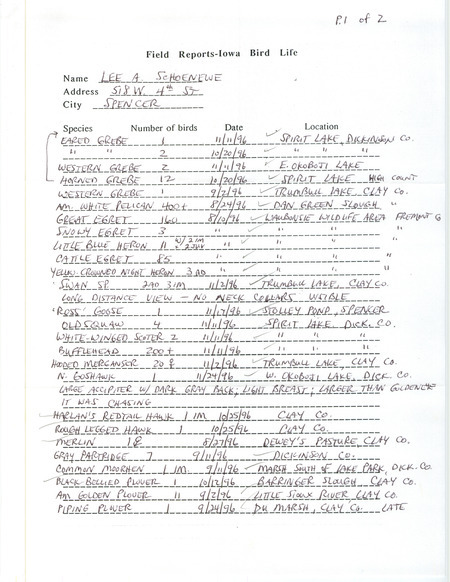 P.1 of 2
Field Reports-Iowa Bird Life
Name LEE A SCHOENEWE
Address 518 W. 4th St
City SPENCER
Species Number of birds Date Location
EARED GREBE 1 11/11/96 ✓ SPIRIT LAKE, DICKINSON CO.
" " 2 10/20/96 ✓ " " "
WESTERN GREBE 2 11/11/96 ✓ E. OKOBOJI LAKE
HORNED GREBE 12 10/20/96 ✓ SPIRIT LAKE HIGH COUNT
WESTERN GREBE 1 9/2/96 ✓ TRUMBULL LAKE, CLAY CO.
AM. WHITE PELICAN 400+ 8/24/96 ✓ DAN GREEN SLOUGH "
GREAT EGRET 160 8/10/96 ✓ WAUBONSIE WILDLIFE AREA FREMONT
SNOWY EGRET 3 " ✓ " " "
LITTLE BLUE HERON 11 " ✓ " " "
CATTLE EGRET 85 " ✓ " " "
YELLOW-CROWNED NIGHT HERON 3 AD " ✓ " " "
SWAN SP. 2AD 3 IM 11/2/96 ✓ TRUMBULL LAKE, CLAY CO.
LONG DISTANCE VIEW - NO NECK COLLARS VISIBLE
ROSS' GOOSE 1 11/17/96 ✓ STOLLEY POND, SPENCER
OLDSQUAW 4 11/11/96 ✓ SPIRIT LAKE DICK. CO.
WHITE-WINGED SCOTER 2 11/11/96 ✓ " " "
BUFFLEHEAD 200+ 11/11/96 ✓ " " "
HOODED MERGANSER 20 11/2/96 ✓ TRUMBULL LAKE CLAY CO.
N. GOSHAWK 1 11/24/96 ✓ W. OKOBOJI LAKE, DICK CO.
LARGE ACCIPITER W/ DARK GRAY BACK, LIGHT BREAST; LARGER THAN GOLDENEYE
IT WAS CHASING
HARLAN'S REDTAIL HAWK 1 IM 10/25/96 CLAY CO.
ROUGH LEGGED HAWK 1 10/25/96 CLAY CO.
MERLIN 1 8/27/96 DEWEY'S PASTURE, CLAY CO.
GRAY PARTRIDGE 7 9/11/96 ✓ DICKINSON CO.
COMMON MOORHEN 1 IM. 9/11/96 ✓ MARSH SOUTH OF LAKE PARK, DICK. CO.
BLACK BELLIED PLOVER 1 10/12/96 ✓ BARRINGER SLOUGH, CLAY CO.
AM GOLDEN PLOVER 11 9/2/96 ✓ LITTLE SIOUX RIVER CLAY CO.
PIPING PLOVER 1 9/24/96 ✓ DU MARSH, CLAY CO. LATE